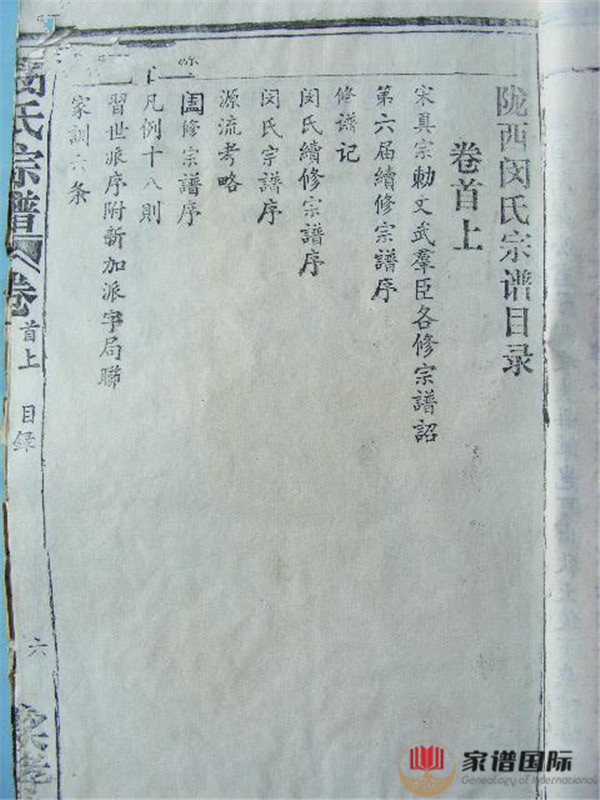 陇西闵氏宗谱目录
卷首上
宋真宗勅文武羣臣各修宗譜詔
第六届續修宗譜序
修谱记
闵氏續修宗譜序
闵氏宗譜序
源流考略
修宗譜序
凡例十八則
習世派序附新加派字局聯
家訓六条
氏宗譜
卷首上
目録
六
家谱国际
Genealogy of International